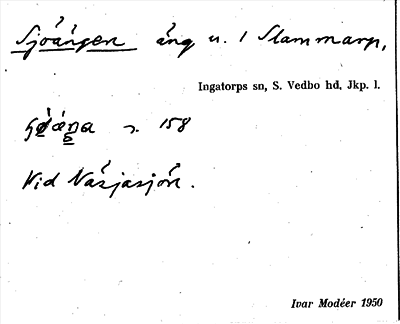 Sjöängen äng u. 1 Slammarp,
Ingatorps sn, S. Vedbo hd, Jkp. l.
s. 158
Vid Näsjasjön.
Ivar Modéer 1950